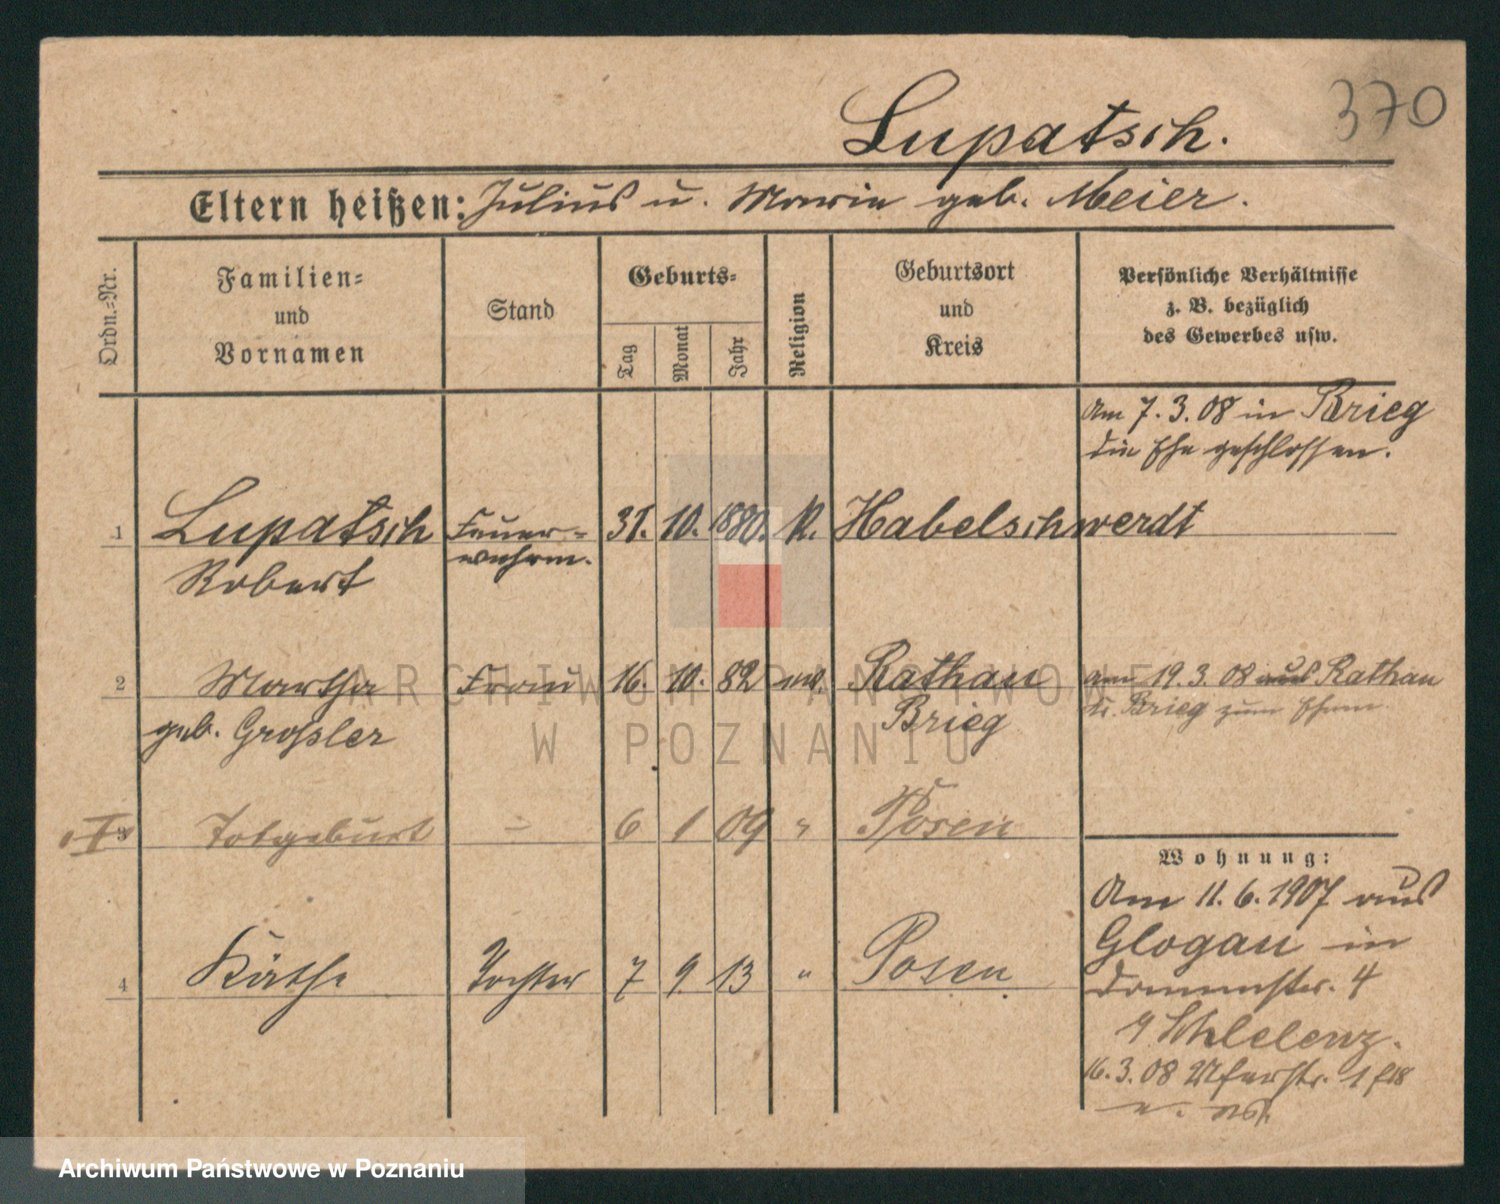 370
Lupatsch.
Eltern heißen: Julius u. Marie geb. Meier.
Ordn.-Nr.
Familien-
und
Vornamen
Stand
Geburts-
Tag
Monat
Jahr
Religion
Geburtsort
und
Kreis
Persönliche Verhältnisse
z. B. bezüglich
des Gewerbes usw.
Am 7.3.08 in Brieg
die Ehe geschlossen.
1 Lupatsch Feuer- 31. 10. 1880. K. Habelschwerdt
Robert wehrm.
2 Martha Frau 16. 10. 82 ev. Rathau am 19.3.08 aus Rathau
geb. Großler Brieg Kr. Brieg zum Ehem.
3 Totgeburt - 6 1 09 " Posen
Wohnung:
Am 11.6.1907 aus
Glogau in
4 Käthe Tochter 7 9 13 " Posen
4
16.3.08 Uferstr. 1
ARCHIWUM PAŃSTWOWE
W POZNANIU
Archiwum Państwowe w Poznaniu